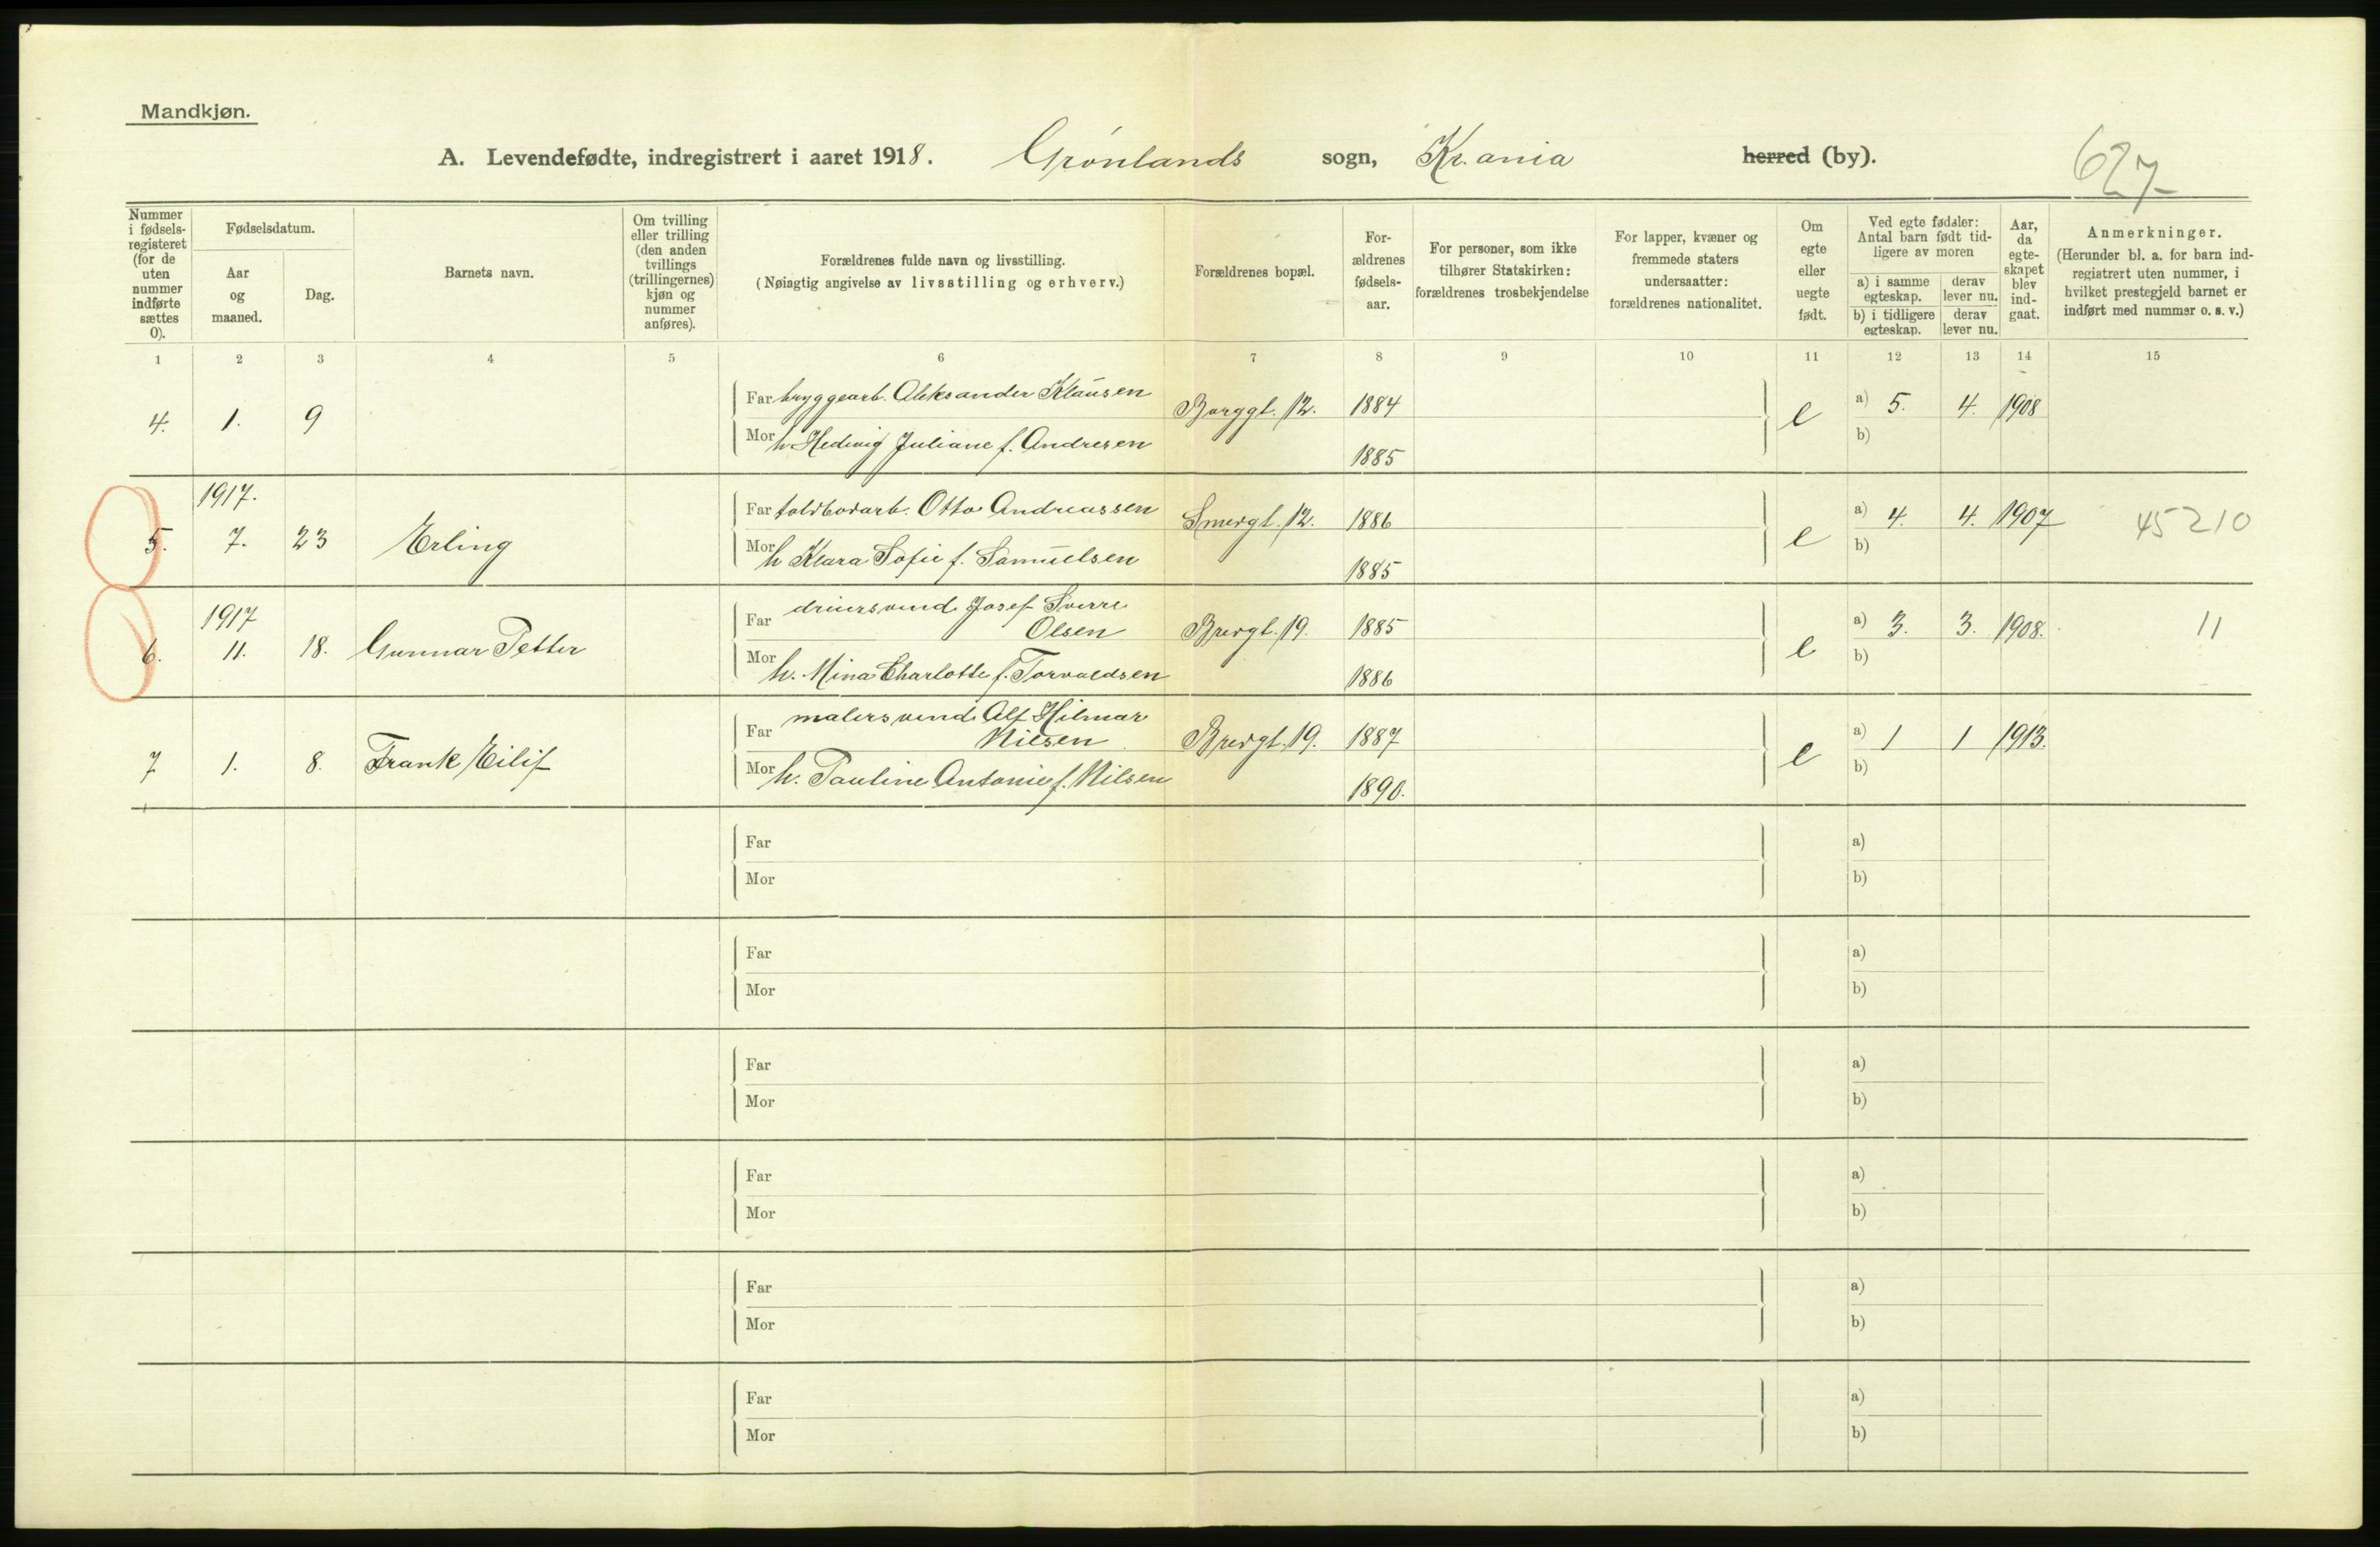 Mandkjøn.
A. Levendefødte, indregistrert i aaret 1918. Grønlands sogn, Kr.ania herred (by).
627
Nummer i fødselsregisteret (for de uten nummer indførte sættes 0).
Fødselsdatum.
Aar og maaned.
Dag.
Barnets navn.
Om tvilling eller trilling (den anden tvillings (trillingernes) kjøn og nummer anføres).
Forældrenes fulde navn og livsstilling.
(Nøiagtig angivelse av livsstilling og erhverv.)
Forældrenes bopæl.
Forældrenes fødselsaar.
For personer, som ikke tilhører Statskirken: forældrenes trosbekjendelse
For lapper, kvæner og fremmede staters undersaatter: forældrenes nationalitet.
Om egte eller uegte født.
Ved egte fødsler: Antal barn født tidligere av moren
a) i samme egteskap. derav lever nu.
b) i tidligere egteskap. derav lever nu.
Aar, da egteskapet blev indgaat.
Anmerkninger.
(Herunder bl. a. for barn indregistrert uten nummer, i hvilket prestegjeld barnet er indført med nummer o. s. v.)
1 2 3 4 5 6 7 8 9 10 11 12 13 14 15
4. 1. 9 Far bryggearb. Aleksander Klausen Borggt. 12. 1884 e a) 5. 4. 1908
Mor h. Hedvig Juliane f. Andresen 1885 b)
1917.
5. 7. 23 Erling Far toldbodarb. Otto Andreassen Smedgt. 12. 1886 e a) 4. 4. 1907 45210
Mor h Klara Sofie f. Samuelsen 1885 b)
1917
6. 11. 18. Gunnar Petter Far dreiersvend Josef Sverre Olsen Bredgt. 19. 1885 e a) 3. 3. 1908. 11
Mor h. Mina Charlotte f. Torvaldsen 1886 b)
7 1. 8. Frank Eilif Far malersvend Alf Hilmar Nilsen Bredgt. 19. 1887 e a) 1 1 1913.
Mor h. Pauline Antonie f. Nilsen 1890. b)
Far a)
Mor b)
Far a)
Mor b)
Far a)
Mor b)
Far a)
Mor b)
Far a)
Mor b)
Far a)
Mor b)